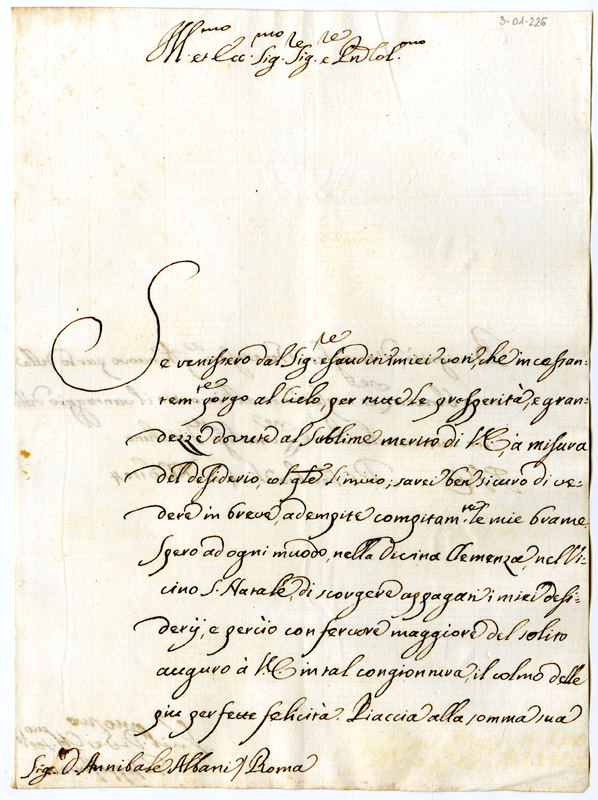 3-01-226
Ill.mo et Ecc.mo Sig.re Sig.re e Pñ Col.mo
Se venissero dal Sig.re esauditi i miei voti, che incessan:
tem.te porgo al Cielo, per tutte le prosperità, e gran-
dezze dovute al sublime merito di V.E., à misura
del desiderio, col qle l'invio; sarei ben sicuro di ve-
dere in breve, adempite compitam.te le mie brame.
Spero ad ogni muodo, nella Divina Clemenza, nel Vi-
cino S. Natale, di scorgere appagati i miei desi:
derij, e perciò con fervore maggiore del solito
auguro à V.E. in tal congionnura, il colmo delle
più perfette felicità. Piaccia alla somma sua
Sig.r D. Annibale Albani / Roma